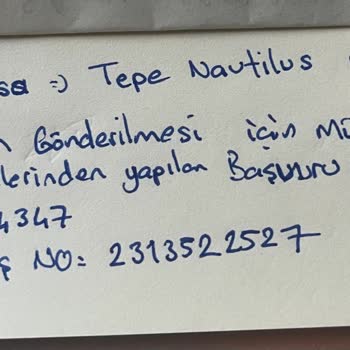 sa => Tepe Nautilus
Gönderilmesi için Mü
lerinden yapılan Başvuru
4347
NO: 2313522527